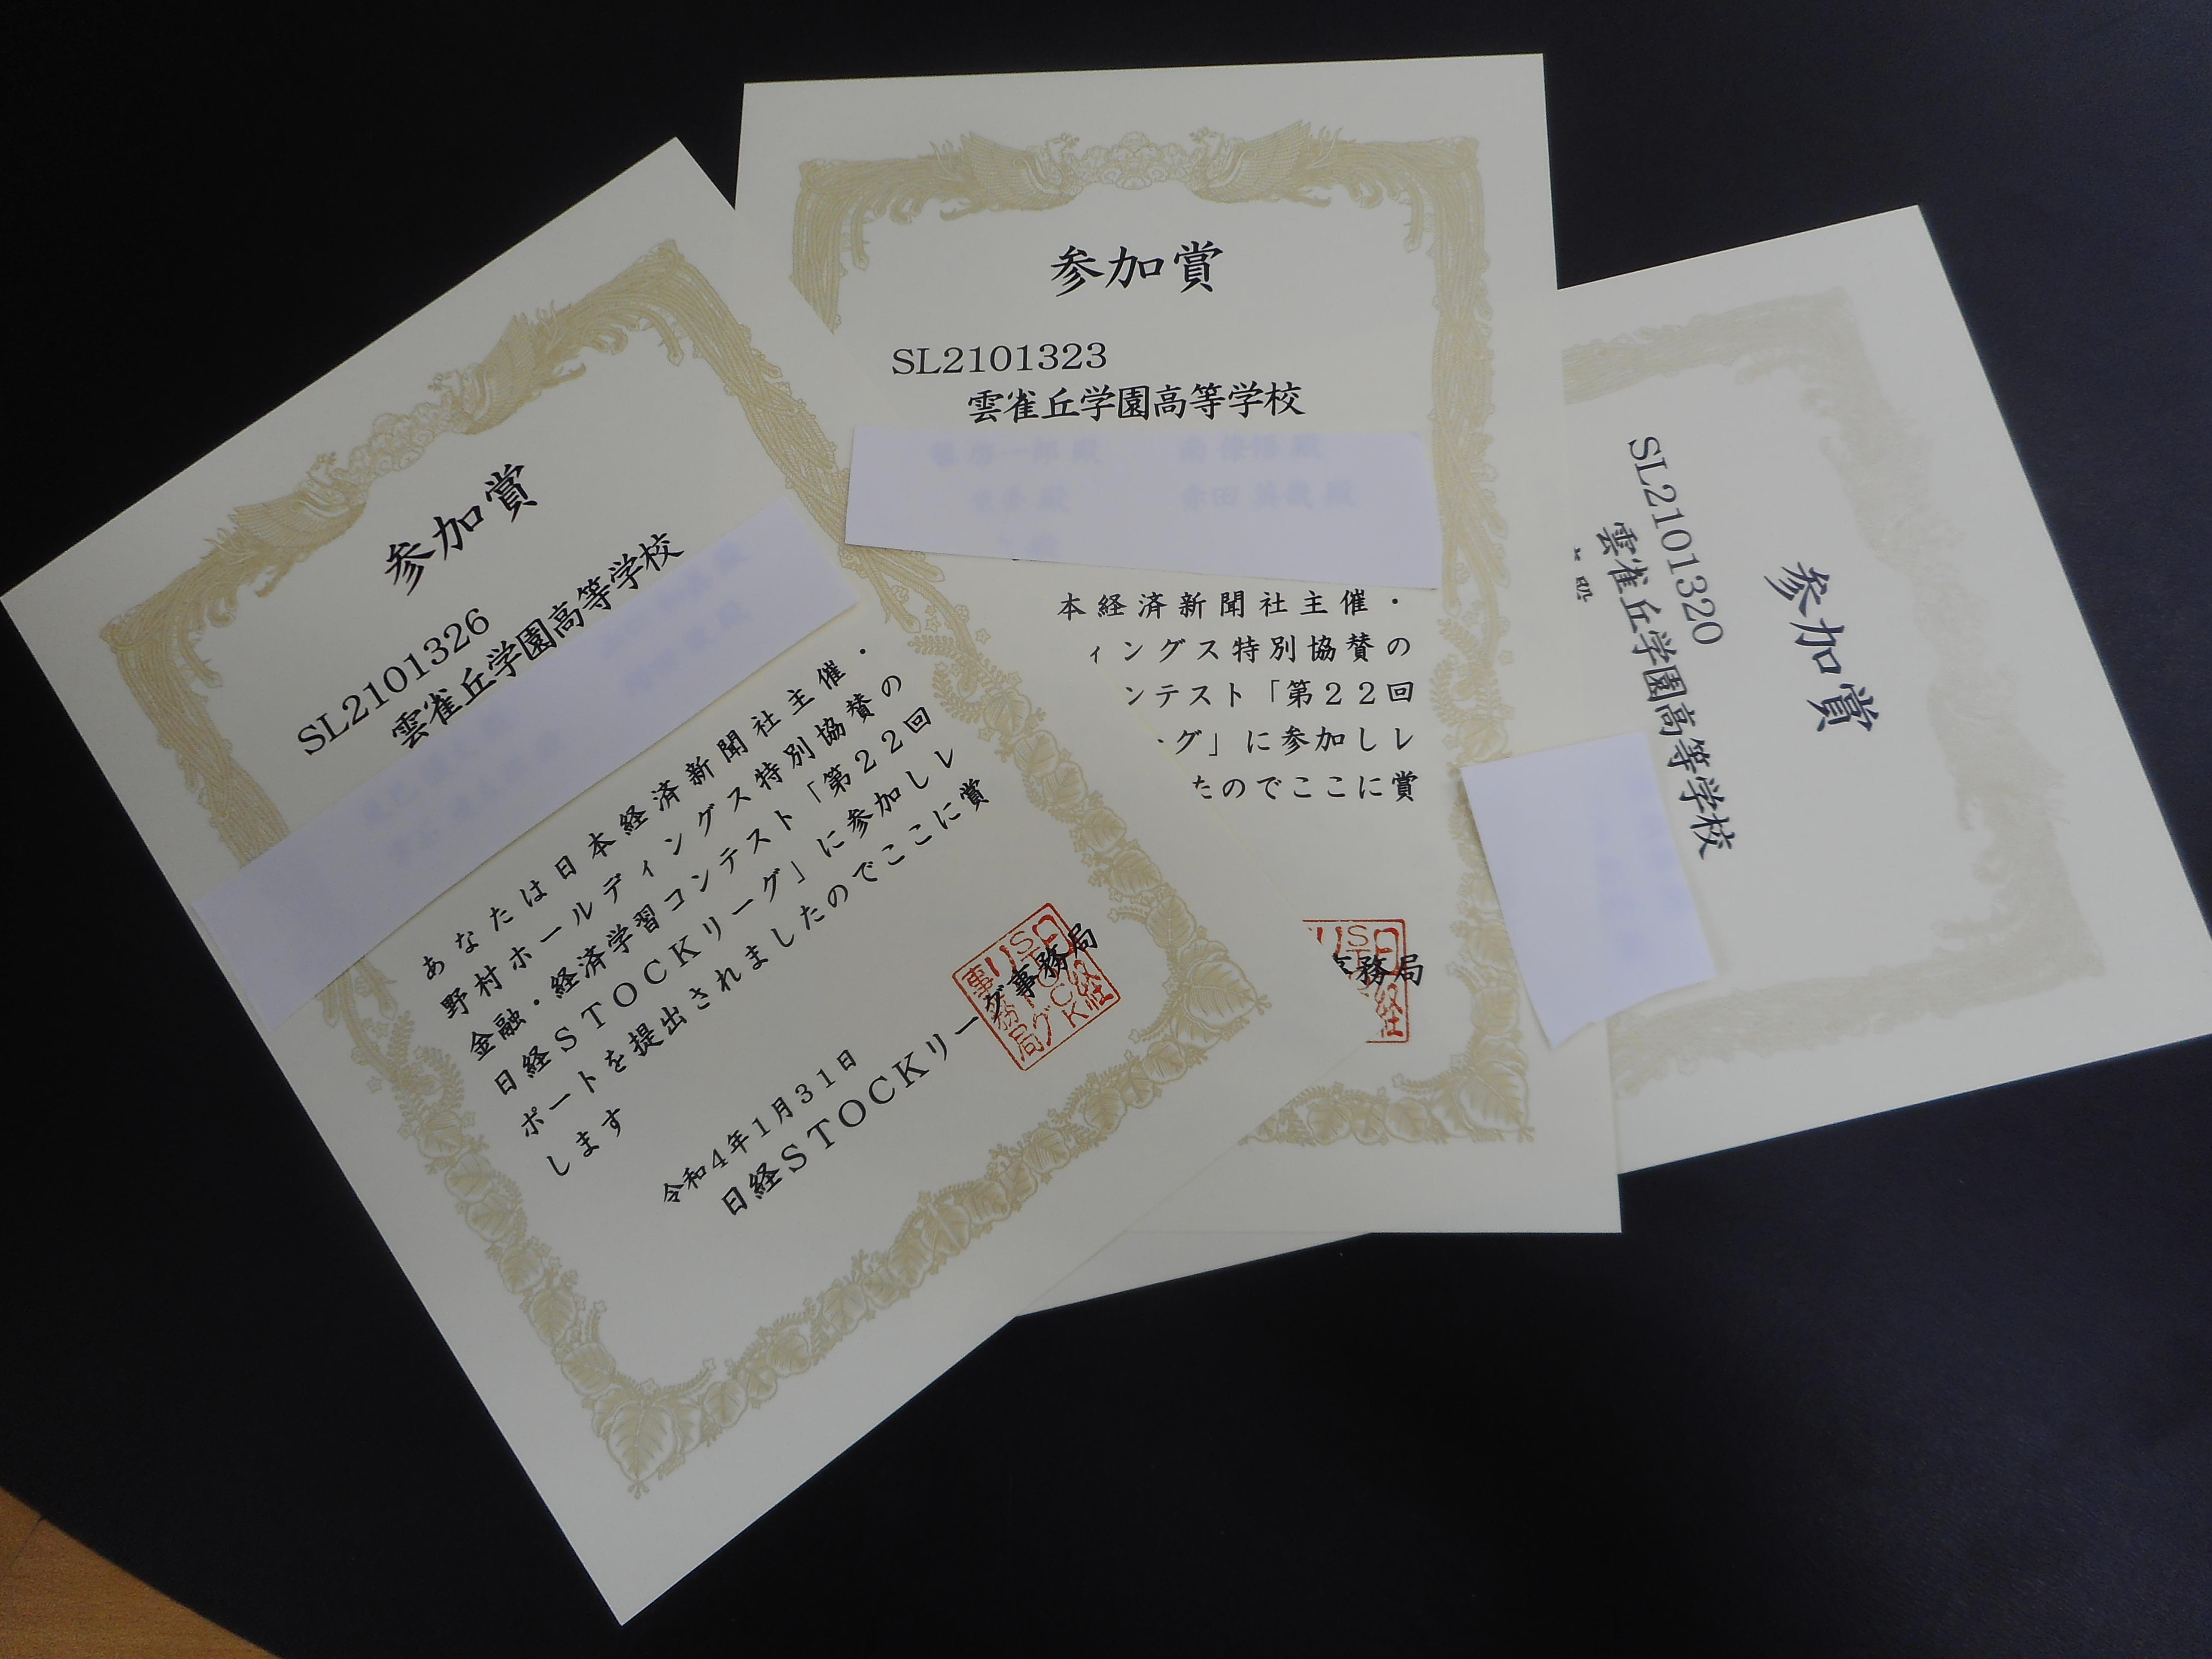 参加賞
SL2101326
雲雀丘学園高等学校
あなたは日本経済新聞社主催・
野村ホールディングス特別協賛の
金融・経済学習コンテスト「第２２回
日経ＳＴＯＣＫリーグ」に参加しレ
ポートを提出されましたのでここに賞
します
令和４年１月３１日
日経ＳＴＯＣＫリーグ事務局
日経
STOCK
リーグ
事務局
参加賞
SL2101323
雲雀丘学園高等学校
本経済新聞社主催・
ィングス特別協賛の
ンテスト「第２２回
グ」に参加しレ
たのでここに賞
務局
参加賞
SL2101320
雲雀丘学園高等学校